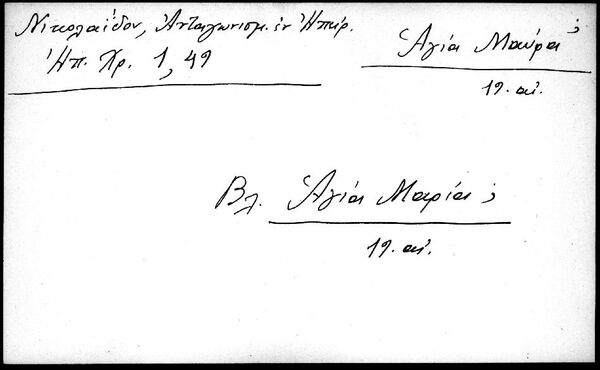 Νικολαΐδου, Ἀνταγωνισμ. ἐν Ἠπείρ.
Ἠπ. Χρ. 1, 49
Ἁγία Μαύρα ;
19. αἰ.
Βλ. Ἁγία Μαρία ;
19. αἰ.